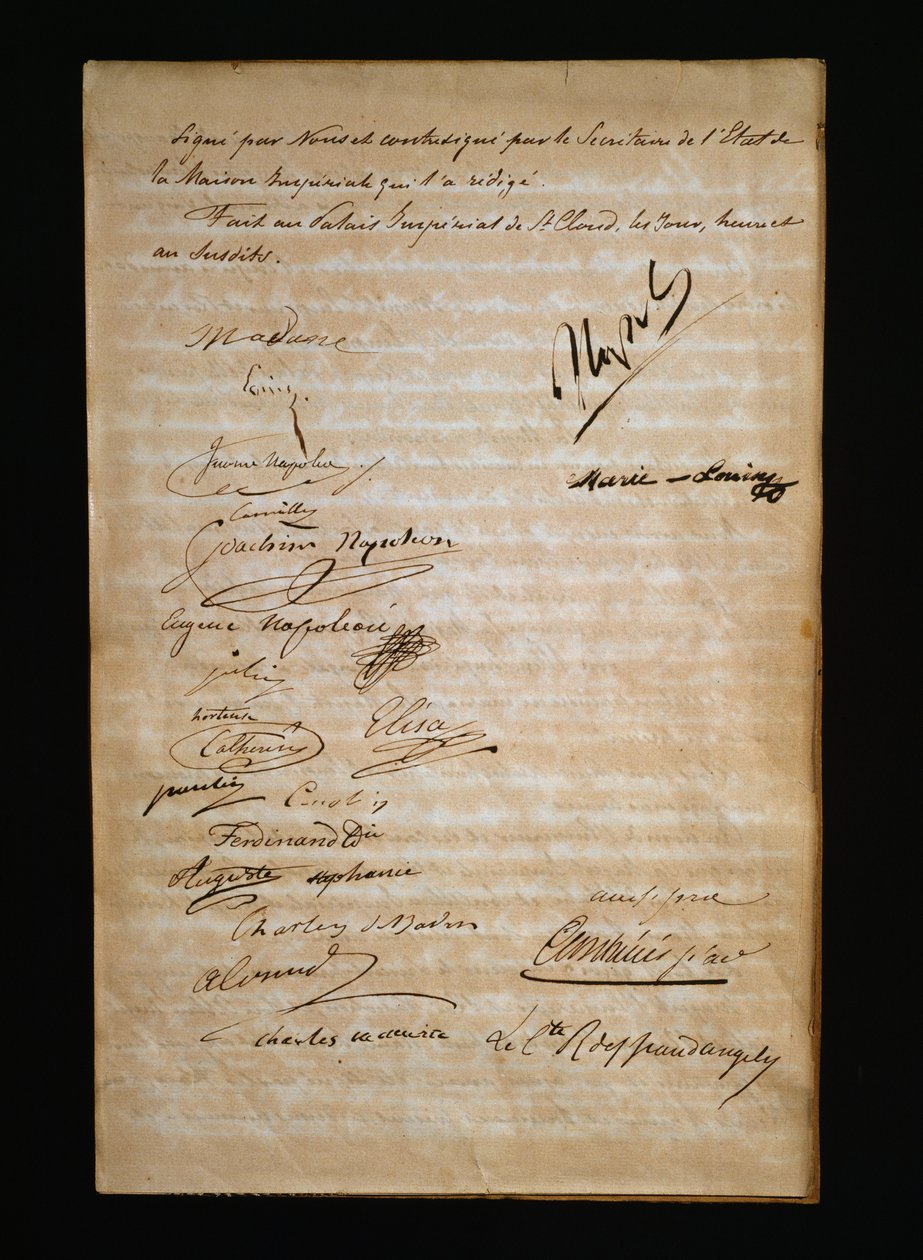 Signé par Nous et contresigné par le Secrétaire de l'Etat de
la Maison Impériale qui l'a rédigé.
Fait au Palais Impérial de St Cloud, les Jour, heure et
an Susdits.
Madame
Napol
Louis.
Jérome Napoléon.
Marie-Louise
Camille
Joachim Napoleon
Eugene Napoleon
julie
hortense
Elisa
Catherine
pauline
Ferdinand
Auguste Stephanie
Charles d Baden
Cambacérès
Le Cte R de St Jean d'angely